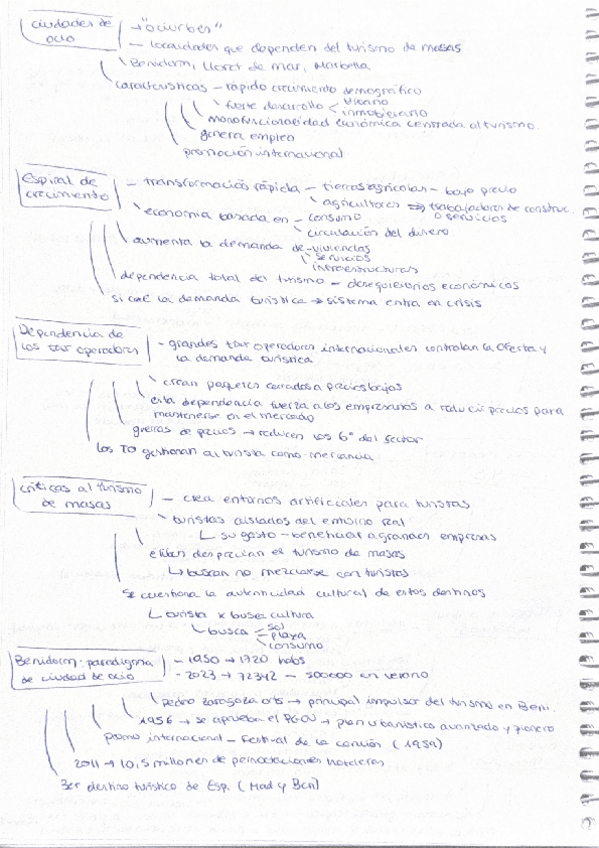 ciudades de ocio → "ociurbes"
— localidades que dependen del turismo de masas
Benidorm, Lloret de Mar, Marbella
características — rápido crecimiento demográfico
fuerte desarrollo < urbano
inmobiliario
monofuncionalidad económica centrada al turismo.
genera empleo
promoción internacional
Espiral de crecimiento — transformación rápida — tierras agrícolas — bajo precio
agricultores ⇒ trabajadores de construc.
o servicios
economía basada en — consumo
circulación del dinero
aumenta la demanda de — viviendas
servicios
infraestructuras
dependencia total del turismo — desequilibrios económicos
si cae la demanda turística → sistema entra en crisis
Dependencia de los tour operadores — grandes tour operadores internacionales controlan la oferta y
la demanda turística
crean paquetes cerrados a precios bajos
esta dependencia fuerza a los empresarios a reducir precios para
mantenerse en el mercado
guerras de precios → reducen los bº del sector
los TO gestionan al turista como mercancía
críticas al turismo de masas — crea entornos artificiales para turistas
turistas aislados del entorno real
↳ su gasto — beneficiar a grandes empresas
élites desprecian el turismo de masas
↳ buscan no mezclarse con turistas
se cuestiona la autenticidad cultural de estos destinos
↳ turista x busca cultura
↳ busca — sol
— playa
consumo
Benidorm: paradigma de ciudad de ocio — 1950 → 1720 habs
— 2023 → 72342 — 300000 en verano
Pedro Zaragoza Orts → principal impulsor del turismo en Beni.
1956 → se aprueba el PGOU → plan urbanístico avanzado y pionero
promo internacional — Festival de la canción (1959)
2011 → 10,5 millones de pernoctaciones hoteleras
3er destino turístico de Esp. (Mad y Bcn)